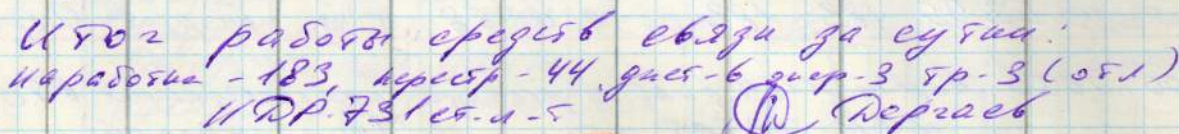 Итог работы средств связи за сутки:
наработка - 183, перестр - 44, дист - 6 диср - 3 тр. - 3 (отл)
НДР-731 ст. л-т Дергаев